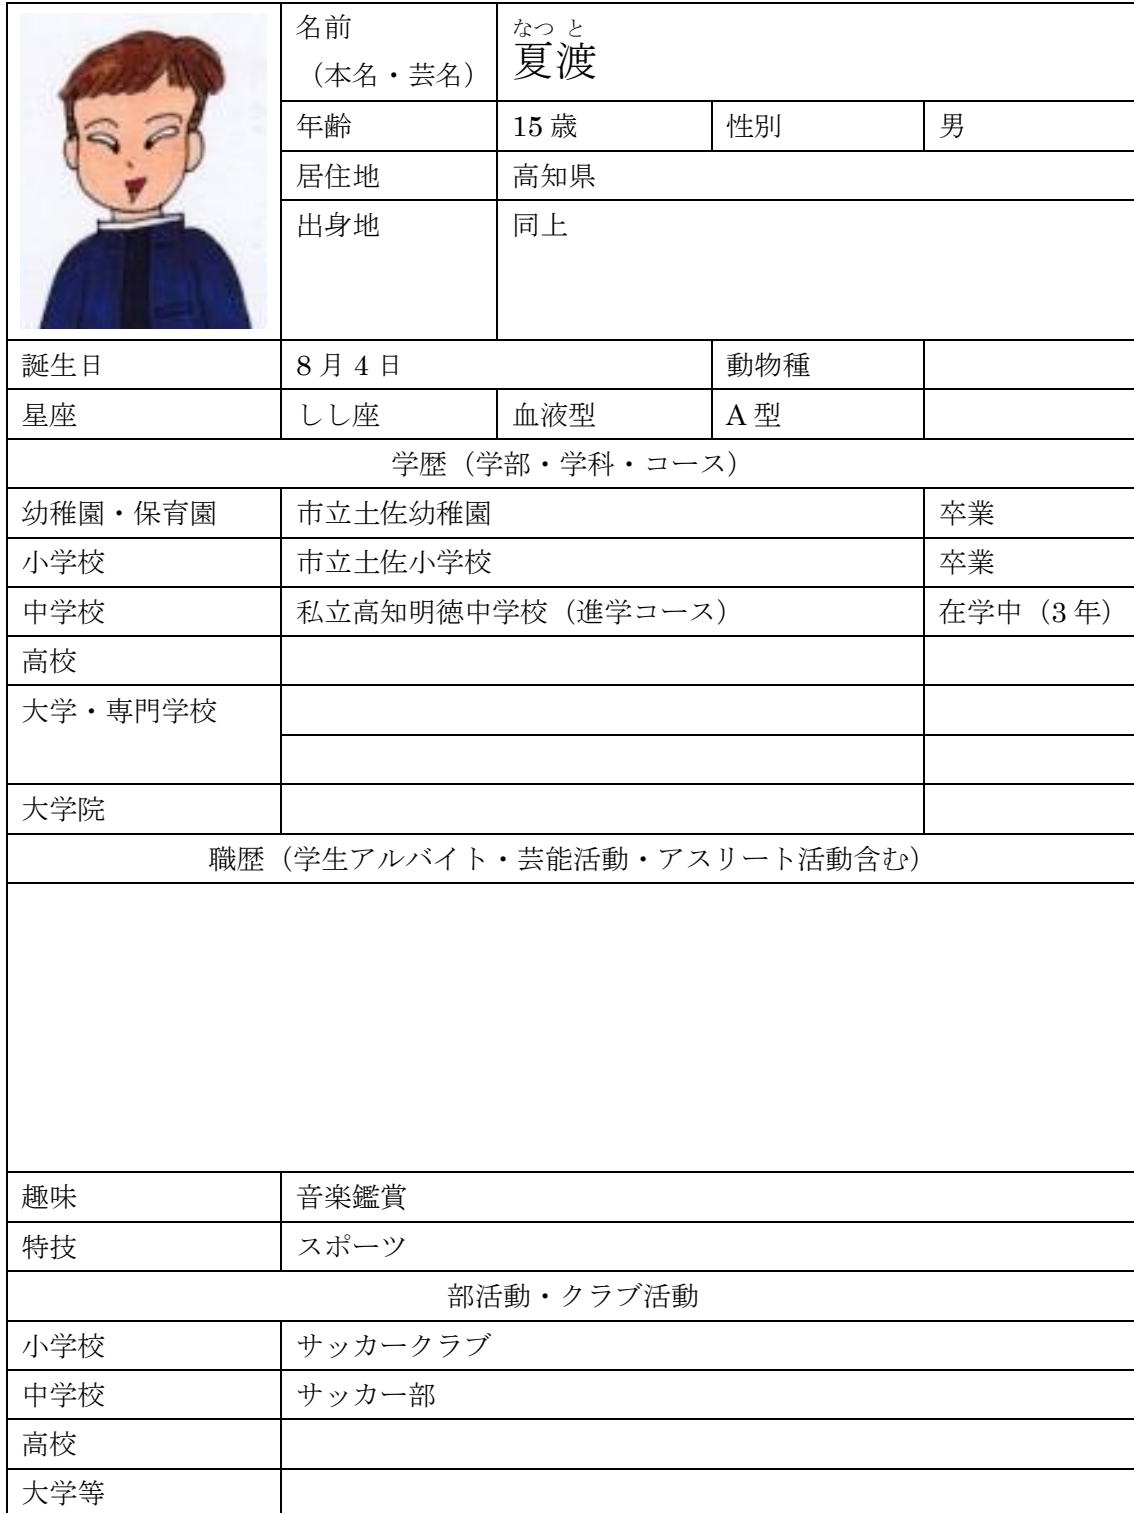 名前
（本名・芸名）
なつ と
夏渡
年齢 15歳 性別 男
居住地 高知県
出身地 同上
誕生日 8月4日 動物種
星座 しし座 血液型 A型
学歴（学部・学科・コース）
幼稚園・保育園 市立土佐幼稚園 卒業
小学校 市立土佐小学校 卒業
中学校 私立高知明徳中学校（進学コース） 在学中（3年）
高校
大学・専門学校
大学院
職歴（学生アルバイト・芸能活動・アスリート活動含む）
趣味 音楽鑑賞
特技 スポーツ
部活動・クラブ活動
小学校 サッカークラブ
中学校 サッカー部
高校
大学等